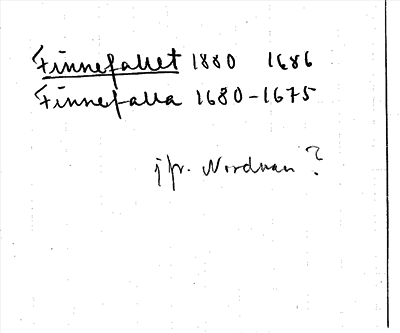 Finnefallet 1880 1686
Finnefalla 1680-1675
jfr. Nordman?